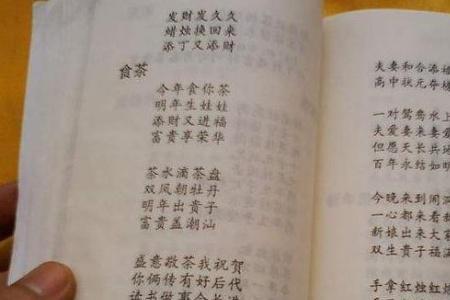 发财发久久
蜡烛换回来
添丁又添财
食茶
今年食你茶
明年生娃娃
添财又进福
富贵享荣华
茶水滴茶盘
双凤朝牡丹
明年出贵子
富贵盖潮汕
盛意敬茶我祝贺
你俩传有好后代
读书做事会长进
夫妻和合添
高中状元夺
一对鸳鸯水上
夫爱妻来妻爱
但愿天长
百年永结如
今晚来到闹洞
一心都来看新
新娘出来大富
双生贵子福满
手拿红烛红